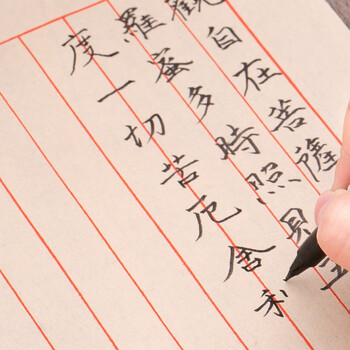 觀自在菩薩
羅蜜多時照見
度一切苦厄舍